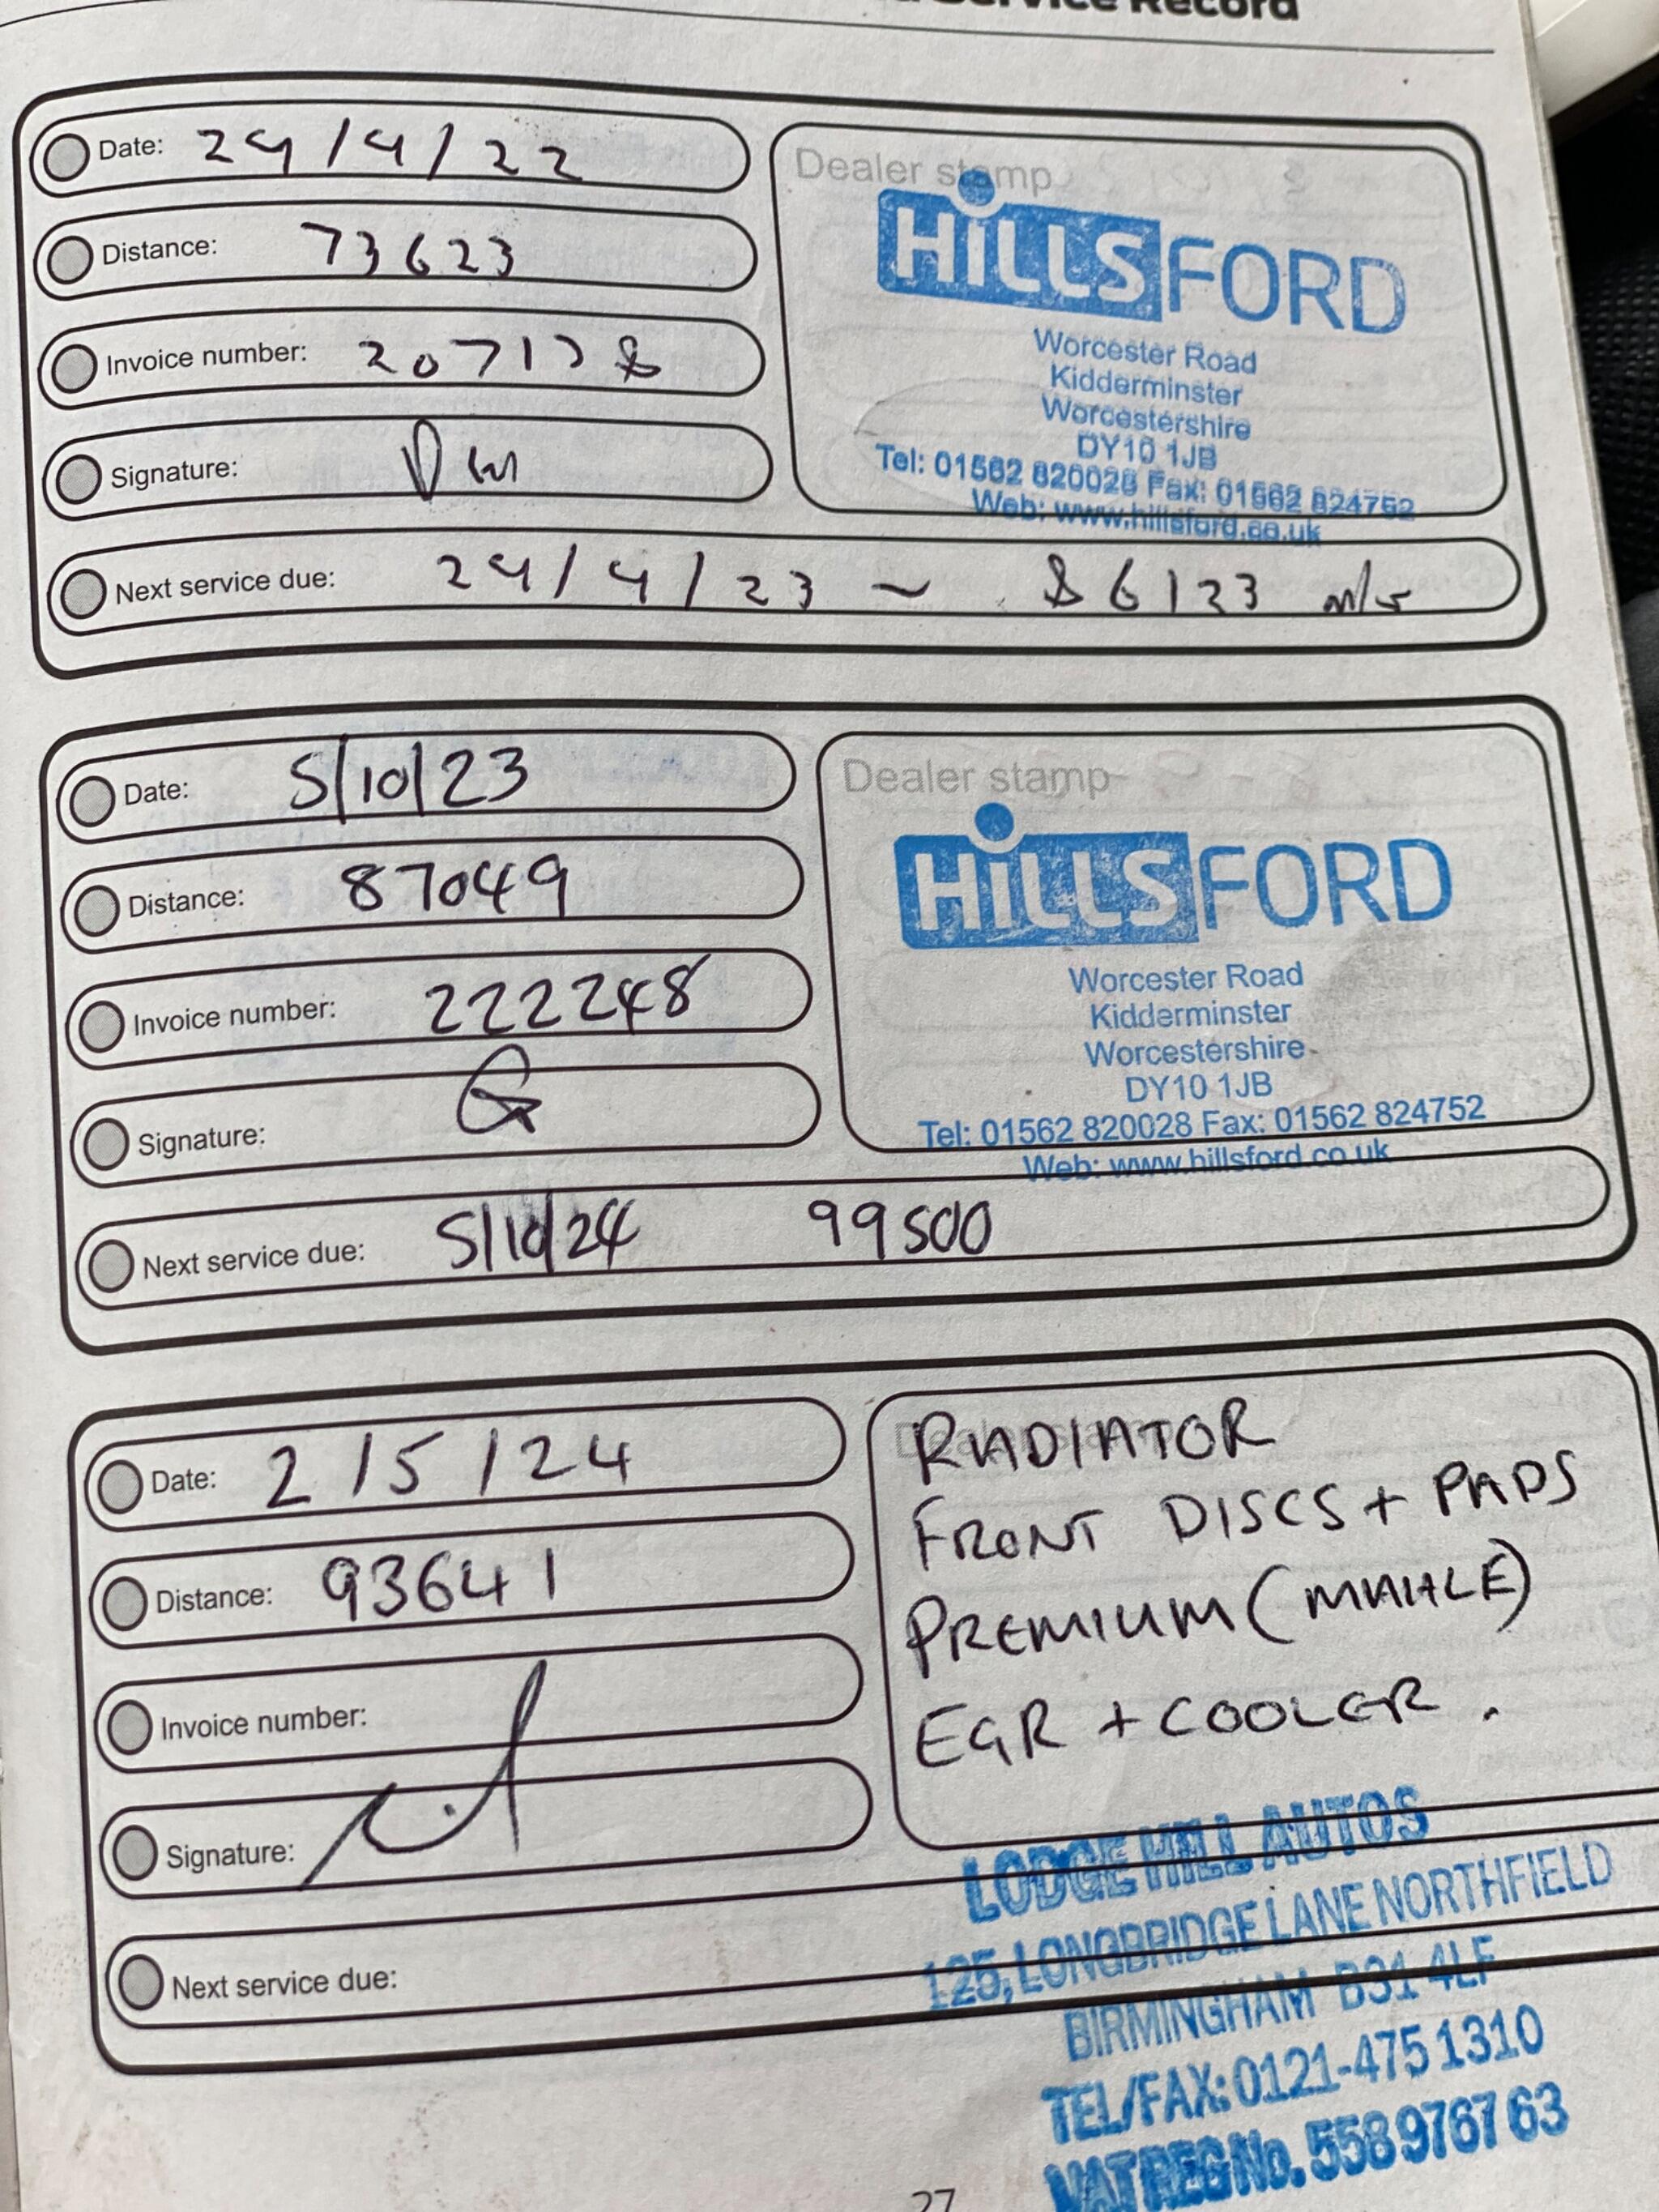 Service Record
Date: 24/4/22
Distance: 73623
Invoice number: 207128
Signature:
Next service due: 24/4/23 ~ 86123 mls
Dealer stamp
HiLLS FORD
Worcester Road
Kidderminster
Worcestershire
DY10 1JB
Tel: 01562 820028 Fax: 01562 824752
Web: www.hillsford.co.uk
Date: 5/10/23
Distance: 87049
Invoice number: 222248
Signature:
Next service due: 5/10/24 99500
Dealer stamp
HiLLS FORD
Worcester Road
Kidderminster
Worcestershire
DY10 1JB
Tel: 01562 820028 Fax: 01562 824752
Web: www.hillsford.co.uk
Date: 2/5/24
Distance: 93641
Invoice number:
Signature:
Next service due:
Dealer stamp
RADIATOR
FRONT DISCS + PADS
PREMIUM (MAHLE)
EGR + COOLER.
LODGE HILL AUTOS
125, LONGBRIDGE LANE NORTHFIELD
BIRMINGHAM B31 4LF
TEL/FAX: 0121-475 1310
VAT REG No. 558 9767 63
27